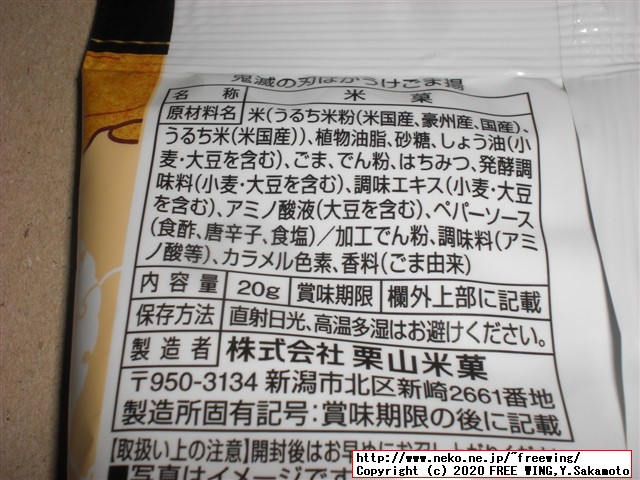 鬼滅の刃ばかうけごま揚
名称 米菓
原材料名 米(うるち米粉(米国産、豪州産、国産)、
うるち米(米国産))、植物油脂、砂糖、しょう油(小
麦・大豆を含む)、ごま、でん粉、はちみつ、発酵調
味料(小麦・大豆を含む)、調味エキス(小麦・大豆
を含む)、アミノ酸液(大豆を含む)、ペパーソース
(食酢、唐辛子、食塩)/加工でん粉、調味料(アミ
ノ酸等)、カラメル色素、香料(ごま由来)
内容量 20g 賞味期限 欄外上部に記載
保存方法 直射日光、高温多湿はお避けください。
製造者 株式会社 栗山米菓
〒950-3134 新潟市北区新崎2661番地
製造所固有記号:賞味期限の後に記載
【取扱い上の注意】開封後はお早めにお召し上がりくだ
■写真はイメージです
http://www.neko.ne.jp/~freewing/
Copyright (c) 2020 FREE WING,Y.Sakamoto